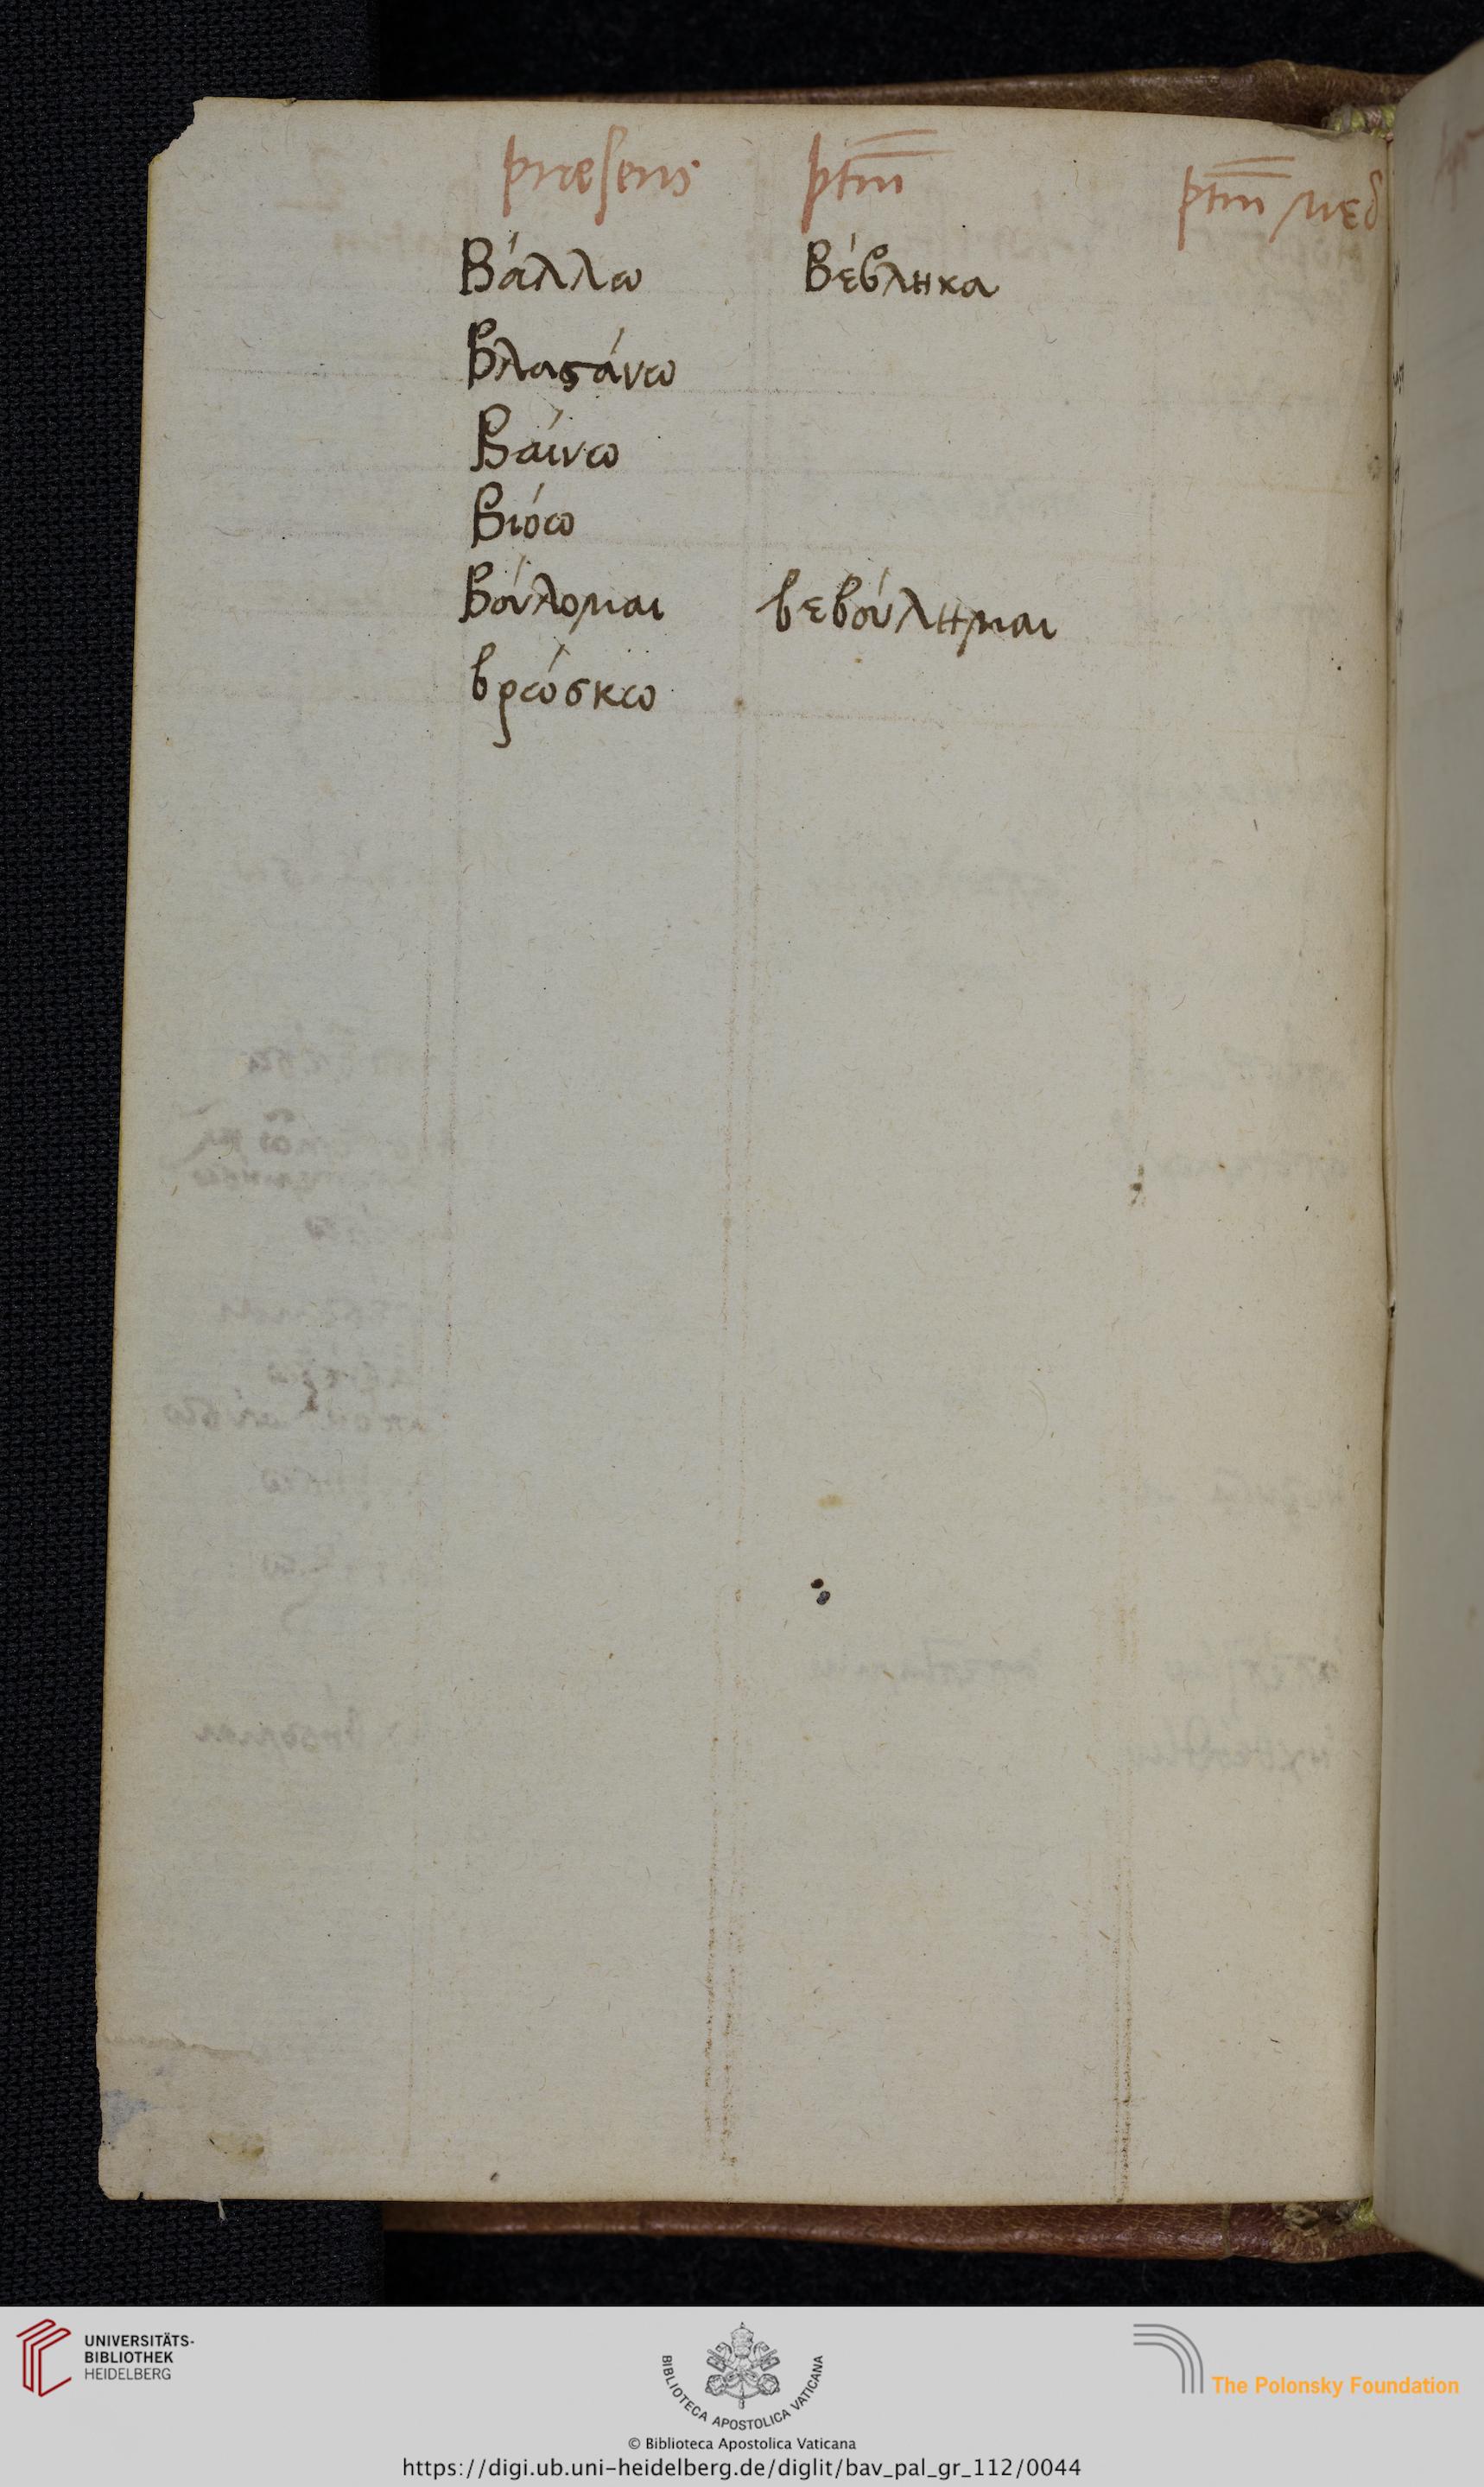 præsens ptm̅ ptm̅ μεδ
Βάλλω Βέβληκα
Βλαϛάνω
Βάινω
Βιόω
Βόυλομαι βεβόυλημαι
βρώσκω
UNIVERSITÄTS-
BIBLIOTHEK
HEIDELBERG
BIBLIOTECA APOSTOLICA VATICANA
The Polonsky Foundation
© Biblioteca Apostolica Vaticana
https://digi.ub.uni-heidelberg.de/diglit/bav_pal_gr_112/0044